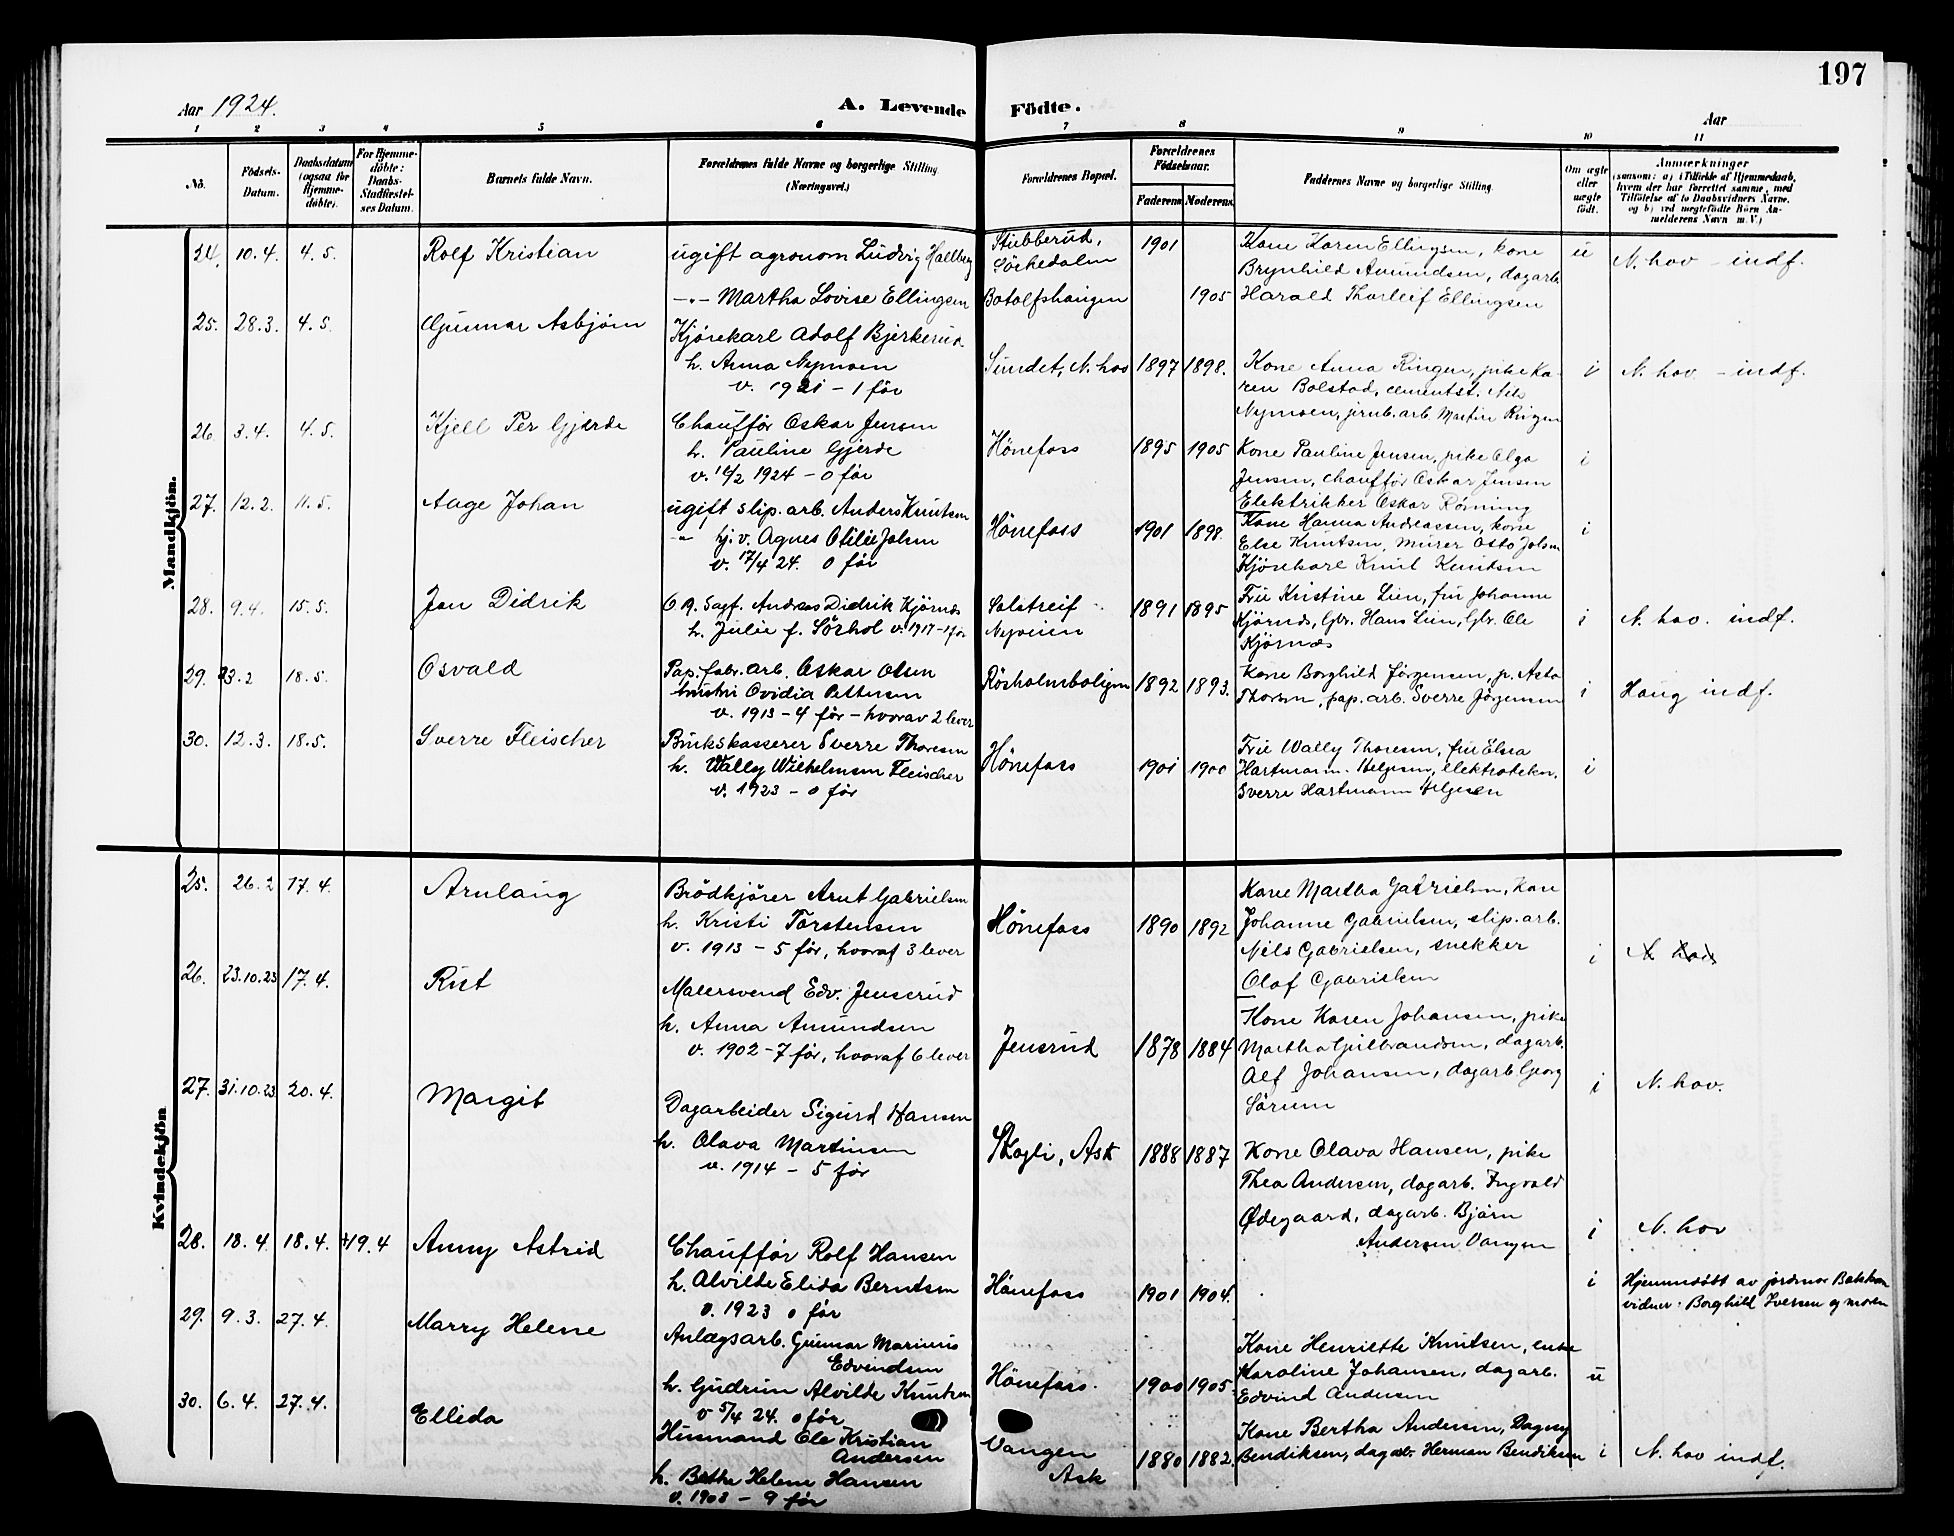 197
Aar 1924.
A. Levende Födte.
Aar
1 2 3 4 5 6 7 8 9 10 11
No. Födsels-Datum. Daabsdatum (ogsaa for Hjemme-döbte). For Hjemme-döbte: Daabs-Stadfæstel-ses Datum. Barnets fulde Navn. Forældrenes fulde Navne og borgerlige Stilling (Næringsvei.) Forældrenes Bopæl. Forældrenes Födselsaar. Faderens Moderens. Faddernes Navne og borgerlige Stilling. Om ægte eller uægte födt. Anmærkninger
(saasom: a) i Tilfælde af Hjemmedaab, hvem der har forrettet samme, med Tilföielse af to Daabsvidners Navne, og b) ved uægtefödte Börn An-melderens Navn m. V.)
Mandkjön.
24. 10.4. 4.5. Rolf Kristian
ugift agronom Ludvig Hallberg
-"- Martha Lovise Ellingsen
Stubberud, Sörkedalen
Botolfshaugen
1901
1905
Kone Karen Ellingsen, kone
Brynhild Amundsen, dagarb.
Harald Thorleif Ellingsen
u
N. hov - indf.
25. 28.3. 4.5. Gunnar Asbjörn
Kjörekarl Adolf Bjerkerud
h. Anna Nymoen
v. 1921 - 1 för
Sundet, N. hov 1897 1898.
Kone Anna Ringen, pike Ka-
ren Bolstad, cementst. Nils
Nymoen, jernb. arb Martin Ringen
i
N. hov - indf.
26. 3.4. 4.5. Kjell Per Gjerde
Chaufför Oskar Jensen
h. Pauline Gjerde
v. 16/2 1924 - 0 för
Hönefoss 1895 1905
Kone Pauline Jensen, pike Olga
Jensen, chaufför Oskar Jensen
Elektrikker Oskar Rönning
i
27. 12.2. 11.5. Aage Johan
ugift slip. arb. Anders Knutsen
-"- hj. v. Agnes Otilie Jolsen
v. 17/4 24. 0 för
Hönefoss 1901 1898.
Kone Hanna Andreassen, kone
Else Knutsen, murer Osto Jolsen
Kjörekarl Knut Knutsen
i
28. 9.4. 15.5. Jan Didrik
O.r. Sagf. Andreas Didrik Kjörnæs
h. Julie f. Sörhol v. 1917 - 1 för
Solstreif
Nyveien
1891 1895
Fru Kristine Lien, fru Johanne
Kjörnæs, gbr. Hans Lien, gbr. Ole
Kjörnæs
i
N. hov. indf.
29. 23.2 18.5. Osvald
Pap. fabr. arb. Oskar Olsen
hustru Ovidia Pettersen
v. 1913 - 4 för - hvorav 2 lever
Rösholmboligen 1892 1893.
Kone Borghild Jörgensen, p. Asta
Thorsen, pap. arb. Sverre Jörgensen
i
Haug indf.
30. 12.3. 18.5. Sverre Fleischer
Brukskasserer Sverre Thoresen
h. Wally Wilhelmsen Fleischer
v. 1923 - 0 för
Hönefoss 1901 1900
Fru Wally Thoresen, fru Elna
Hartmann-Helgesen, elektrotekn.
Sverre Hartmann Helgesen
i
Kvindekjön
25. 26.2 17.4. Arnlaug
Brödkjörer Arnt Gabrielsen
h. Kristi Torstensen
v. 1913 - 5 för, hvoraf 3 lever
Hönefoss 1890 1892
Kone Martha Gabrielsen, Kone
Johanne Gabrielsen, slip. arb.
Nils Gabrielsen, snekker
Olaf Gabrielsen
i
N hov
26. 23.10.23 17.4. Rut
Malersvend Edv. Jensrud
h. Anna Amundsen
v. 1902 - 7 för, hvoraf 6 lever
Jensrud 1878 1884
Kone Karen Johansen, pike
Martha Gulbrandsen, dagarb.
Alf Johansen, dagarb Georg
Sörum
i
N. hov.
27. 31.10.23 20.4. Margit
Dagarbeider Sigurd Hansen
h. Olava Martinsen
v. 1914 - 5 för
Skogli, Ask 1888 1887
Kone Olava Hansen, pike
Thea Andersen, dagarb. Ingvald
Ödegaard, dagarb. Björn
Andersen Vangen
i
N. hov
28. 18.4. 18.4. 19.4 Anny Astrid
Chaufför Rolf Hansen
h. Alvilde Elida Berntsen
v. 1923 0 för
Hönefoss 1901 1904.
i
Hjemmedöbt av jordmor Bakken
vidner: Borghild Iversen og moren
29. 9.3. 27.4. Marry Helene
Anlægsarb. Gunnar Marinius
Edvindsen
h. Gudrun Alvilde Knutsen
v 5/4 24. 0 för
Hönefoss. 1900 1905
Kone Henriette Knutsen, enke
Karoline Johansen, dagarb.
Edvind Andersen
u
30. 6.4. 27.4. Ellida
Husmand Ole Kristian
Andersen
h. Berthe Helene Hansen
v. 1903 - 9 för
Vangen
Ask
1880 1882.
Kone Bertha Andersen, Dagny
Bendiksen, dagarb. Herman Bendiksen
i
N. hov indf.